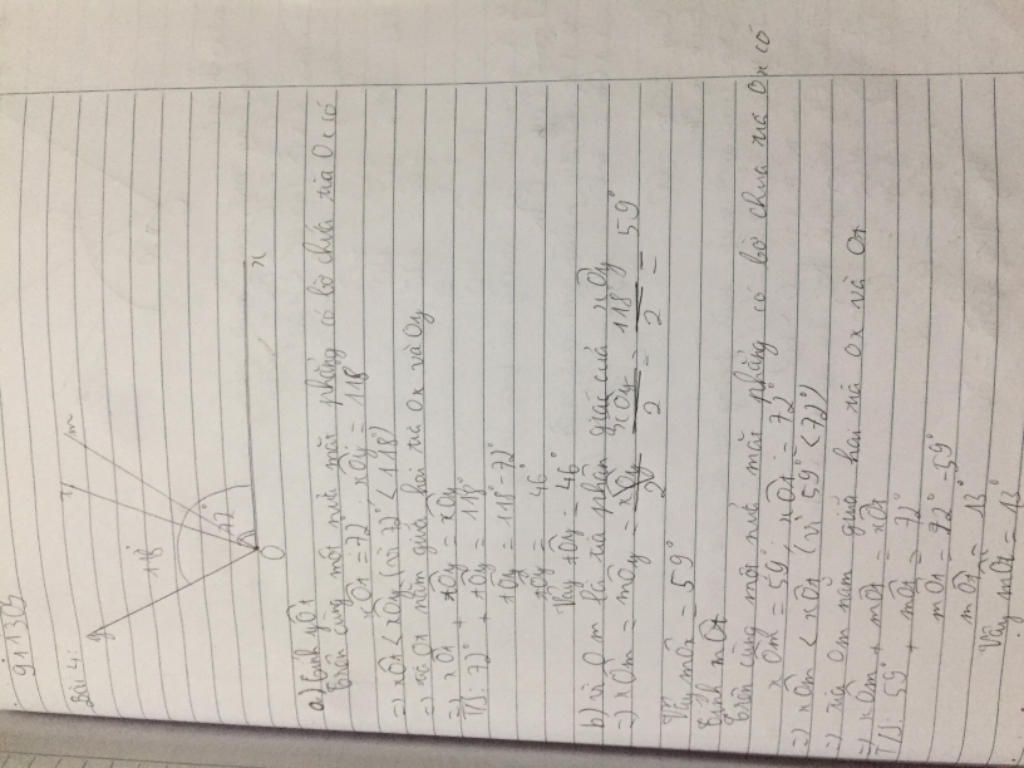 Bài 4:
y
t
m
118°
72°
O
x
a) Tính yÔt
Trên cùng một nửa mặt phẳng có bờ chứa tia Ox có
xÔt = 72°, xÔy = 118°
=) xÔt < xÔy (vì 72° < 118°)
=) tia Ot nằm giữa hai tia Ox và Oy
=) xÔt + tÔy = xÔy
T/S: 72° + tÔy = 118°
tÔy = 118° - 72°
tÔy = 46°
Vậy tÔy = 46°
b) vì Om là tia phân giác của xÔy
=) xÔm = mÔy = xÔy/2 = 118°/2 = 59°
Vậy mÔx = 59°
Tính mÔt
Trên cùng một nửa mặt phẳng có bờ chứa tia Ox có
xÔm = 59°, xÔt = 72°
=) xÔm < xÔt (vì 59° < 72°)
=) tia Om nằm giữa hai tia Ox và Ot
=) xÔm + mÔt = xÔt
T/S: 59° + mÔt = 72°
mÔt = 72° - 59°
mÔt = 13°
Vậy mÔt = 13°